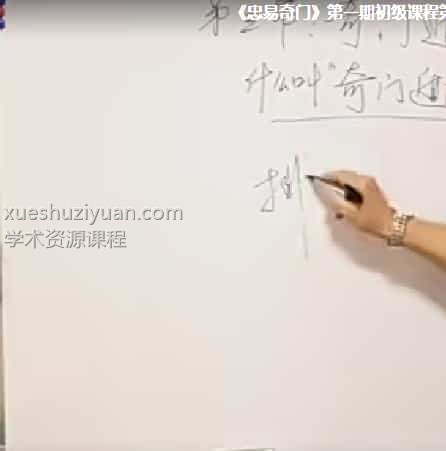 《忠易奇门》第一期初级课程第
第三节：奇门遁
什么叫“奇门遁
xueshuziyuan.com
学术资源课程